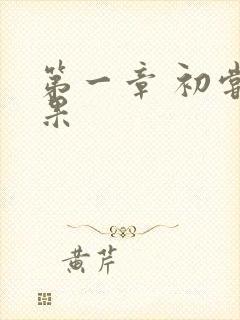 第一章 初尝
果
黄芹